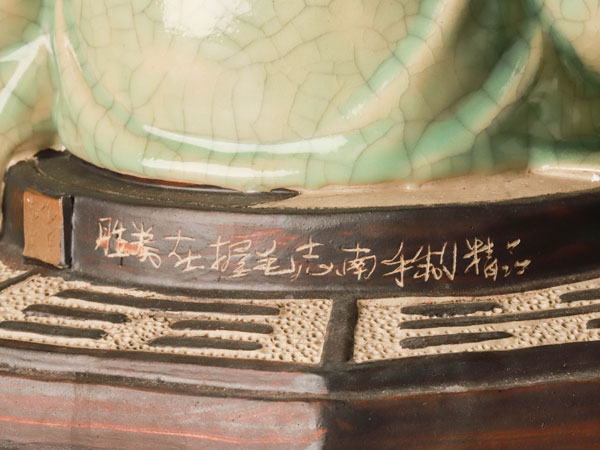 胜券在握毛志南手制精品